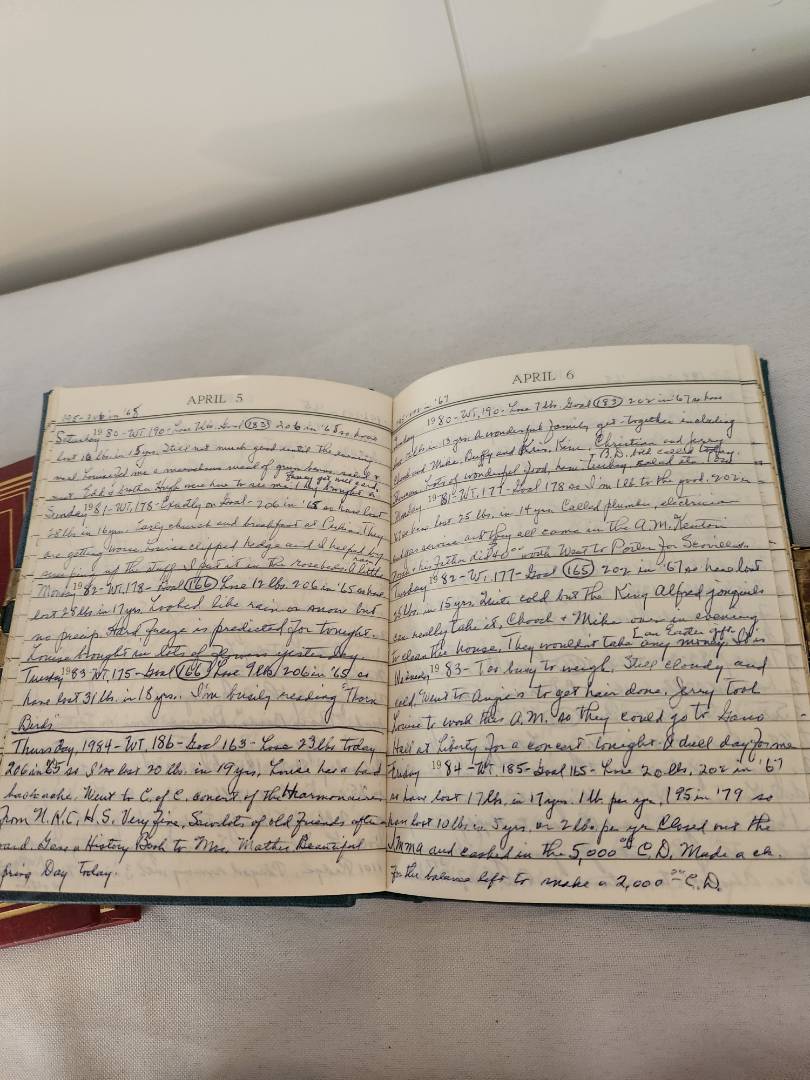 APRIL 5
195-206 in '65
Saturday 1980-WT. 190- Lose 7 lbs. Goal (183) 206 in '65 so have
lost 16 lbs in 15 yrs. Still not much good until the evening
meal. Louise fed me a marvelous meal of green beans, salad &
meat. Edd's brother Hugh were here to see me. They brought a
Sunday 1981-WT. 178- Exactly on Goal-206 in '65 so have lost
28 lbs in 16 yrs. Early church and breakfast at Perkins. They
are getting worse. Louise clipped hedge and I helped by
up the stuff I put it in the rosebeds. A little
Monday 1982-WT. 178- Goal (166) Lose 12 lbs. 206 in '65 so have
lost 28 lbs in 17 yrs. Looked like rain or snow but
no precip. Hard freeze is predicted for tonight.
Louise brought in lots of flowers yesterday.
Tuesday 1983 WT. 175- Goal (166) Lose 9 lbs 206 in '65 so
have lost 31 lbs. in 18 yrs. I'm busily reading "Thorn
Birds"
Thursday, 1984-WT. 186- Goal 163- Lose 23 lbs today
206 in '65 so I've lost 20 lbs. in 19 yrs. Louise has a bad
backache. Went to C. of C. concert of the Harmonaires
from N.K.C. H.S. Very fine. Saw lots of old friends after
and. Gave a History Book to Mrs. Mather. Beautiful
pring Day today.
APRIL 6
'67
Sunday 1980-WT. 190- Lose 7 lbs. Goal (183) 202 in '67 so have
lost 12 lbs in 13 yrs. A wonderful family get-together including
Chooch and Mike, Buffy and Kris, Kim, Christian and Jerry
Lots of wonderful food, ham, turkey, salad etc.
Monday 1981-WT. 177- Goal 178 so I'm 1 lb to the good. 202 in
'67 so have lost 25 lbs. in 14 yrs. Called plumber, electrician
and service and they all came in the A.M. Kenton
and his father did 40.00 worth. Went to Porter for
Tuesday 1982-WT. 177- Goal (165) 202 in '67 so have lost
25 lbs. in 15 yrs. Quite cold but the King Alfred jonquils
can really take it. Chooch & Mike over in evening
to clean the house. They wouldn't take any money. It's
an Easter gift.
Wednesday 1983- Too busy to weigh. Still cloudy and
cold. Went to Angie's to get hair done. Jerry took
Louise to work this A.M. so they could go to Gano
Hall at Liberty for a concert tonight. A dull day for me
Friday 1984-WT. 185- Goal 165- Lose 20 lbs. 202 in '67
so have lost 17 lbs. in 17 yrs. 1 lb per yr. 195 in '79 so
have lost 10 lbs in 5 yrs. or 2 lbs. per yr. Closed out the
IMMA and cashed in the 5,000.00 C.D. Made a ch.
for the balance left to make a 2,000.00 C.D.